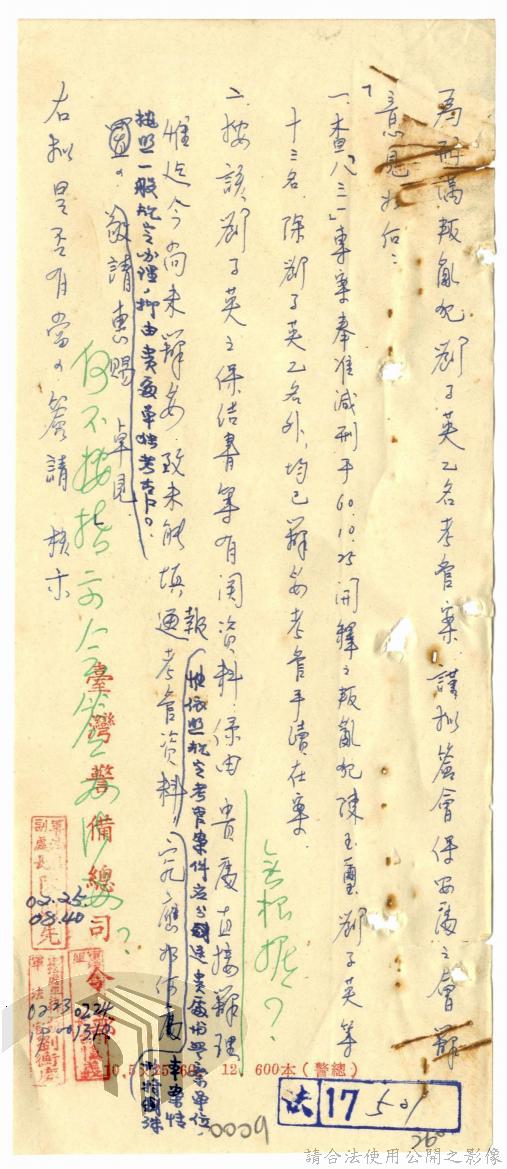 為刑滿叛亂犯鄧子英乙名考管案,謹擬簽會保安處之會辦
意見如后:
一、查「八三一」專案奉准減刑于60.10.25開釋之叛亂犯陳玉璽、鄧子英等
十三名,除鄧子英乙名外,均已辦妥考管手續在案。
二、按該鄧子英之保結書等有關資料,係由貴處直接辦理
惟迄今尚未辦妥,致未能填報
通考管資料,究應如何處
惟依照規定考管案件應分送貴處
本案情
形特殊
按照一般規定辦理,抑由貴處單獨考管。
敬請惠賜卓見
右擬是否有當。簽請核示
無根據?
何不按指示會簽
臺灣警備總司令部
副處長
02.25
08.40
軍法
0224
12. 600本(警總)
法 17 501
0009
260
請合法使用公開之影像